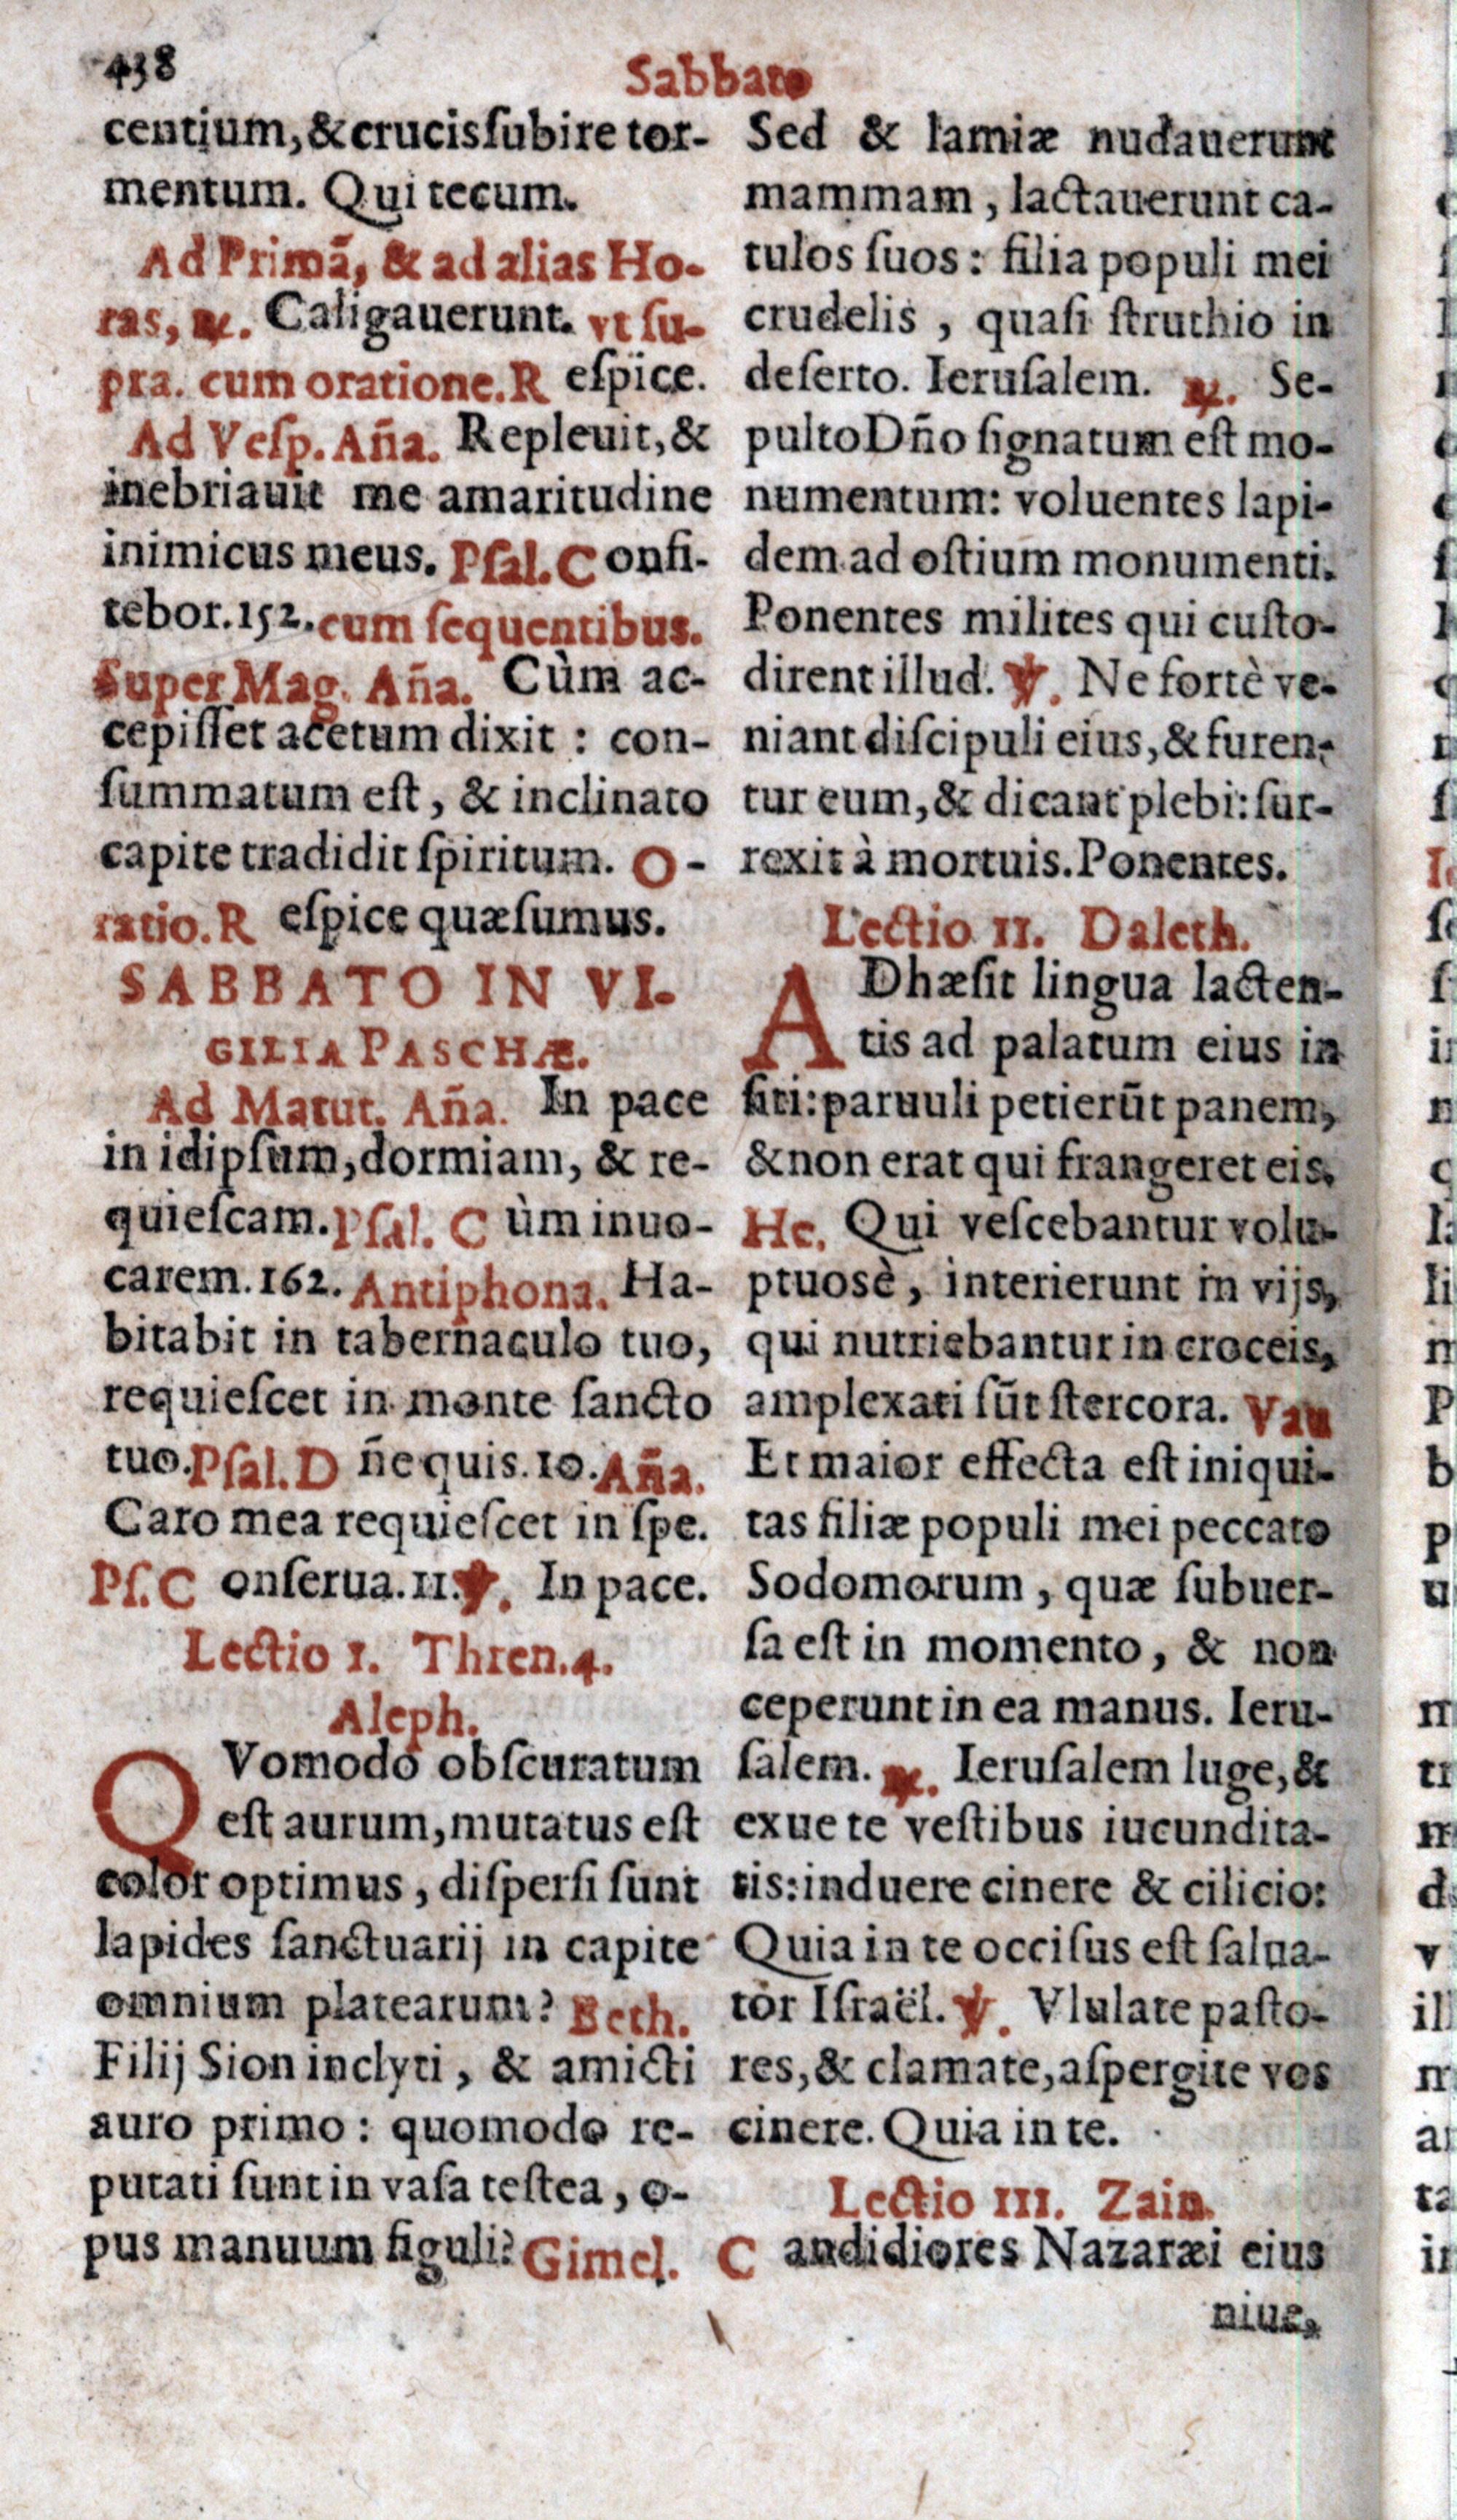 438
Sabbato
centium, & crucis ſubire tor-
mentum. Qui tecum.
Ad Primã, & ad alias Ho-
ras, ℟. Caligauerunt. vt ſu-
pra. cum oratione. R eſpice.
Ad Veſp. Añа. Repleuit, &
inebriauit me amaritudine
inimicus meus. Pſal. C onfi-
tebor. 152. cum ſequentibus.
Super Mag. Aña. Cùm ac-
cepiſſet acetum dixit : con-
ſummatum eſt, & inclinato
capite tradidit ſpiritum. O-
ratio. R eſpice quæſumus.
SABBATO IN VI-
GILIA PASCHÆ.
Ad Matut. Aña. In pace
in idipſum, dormiam, & re-
quieſcam. Pſal. C ùm inuo-
carem. 162. Antiphona. Ha-
bitabit in tabernaculo tuo,
requieſcet in monte ſancto
tuo. Pſal. D ñe quis. 10. Aña.
Caro mea requieſcet in ſpe.
Pſ. C onſerua. 11. ℣. In pace.
Lectio I. Thren. 4.
Aleph.
QVomodo obſcuratum
eſt aurum, mutatus eſt
color optimus, diſperſi ſunt
lapides ſanctuarij in capite
omnium platearum? Beth.
Filij Sion inclyti, & amicti
auro primo : quomodo re-
putati ſunt in vaſa teſtea, o-
pus manuum figuli? Gimel.
Sed & lamiæ nudauerunt
mammam, lactauerunt ca-
tulos ſuos : filia populi mei
crudelis, quaſi ſtruthio in
deſerto. Ieruſalem. ℟. Se-
pulto Dño ſignatum eſt mo-
numentum: voluentes lapi-
dem ad oſtium monumenti.
Ponentes milites qui cuſto-
dirent illud. ℣. Ne fortè ve-
niant diſcipuli eius, & furen-
tur eum, & dicant plebi: ſur-
rexit à mortuis. Ponentes.
Lectio II. Daleth.
ADhæſit lingua lacten-
tis ad palatum eius in
ſiti: paruuli petierũt panem,
& non erat qui frangeret eis.
He. Qui veſcebantur volu-
ptuosè, interierunt in vijs,
qui nutriebantur in croceis,
amplexati ſũt ſtercora. Vau
Et maior effecta eſt iniqui-
tas filiæ populi mei peccato
Sodomorum, quæ ſubuer-
ſa eſt in momento, & non
ceperunt in ea manus. Ieru-
ſalem. ℟. Ieruſalem luge, &
exue te veſtibus iucundita-
tis: induere cinere & cilicio:
Quia in te occiſus eſt ſalua-
tor Iſraël. ℣. Vlulate paſto-
res, & clamate, aſpergite vos
cinere. Quia in te.
Lectio III. Zain.
C andidiores Nazaræi eius
niue,